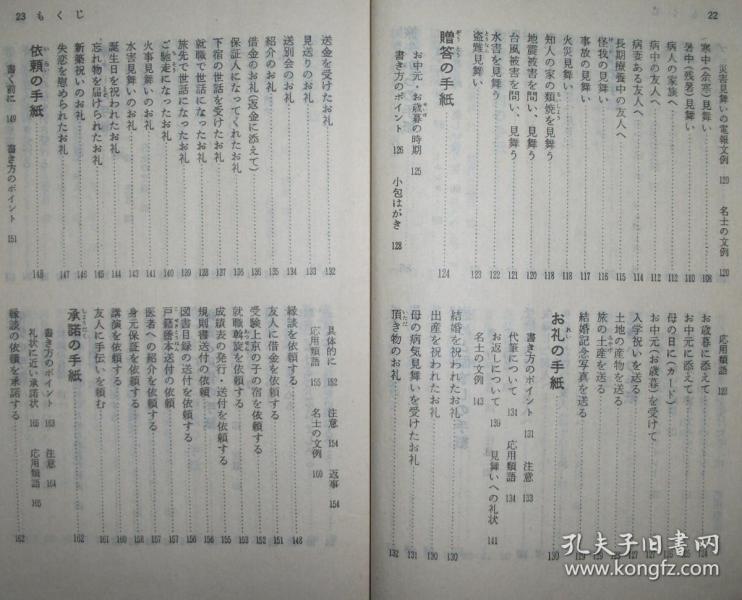 22
災害見舞いの電報文例 120 名士の文例 120
寒中(余寒)見舞い 108
暑中(残暑)見舞い 110
病人の家族へ 112
病中の友人へ 112
病妻ある友人へ 114
長期療養中の友人へ 115
怪我の見舞い 116
事故の見舞い 117
火災見舞い 118
知人の家の類焼を見舞う 118
地震被害を問い、見舞う 120
台風被害を問い、見舞う 121
水害を見舞う 122
盗難見舞い 123
贈答の手紙 124
お中元・お歳暮の時期
書き方のポイント 126 小包はがき 128
応用類語 123
お歳暮に添えて 124
お中元に添えて 125
母の日に(カード)
お中元(お歳暮)を受けて 127
入学祝いを送る 127
土地の産物を送る
旅の土産を送る
結婚記念写真を送る
お礼の手紙 130
書き方のポイント 131 注意 133
代筆について 134 応用類語 134
お返しについて 139 見舞いへの礼状 141
名士の文例 143
結婚を祝われたお礼 130
出産を祝われたお礼 130
母の病気見舞いを受けたお礼 131
頂き物のお礼 132
23 もくじ
送金を受けたお礼 132
見送りのお礼 133
送別会のお礼 134
紹介のお礼 135
借金のお礼(返金に添えて) 136
保証人になってくれたお礼 136
下宿の世話を受けたお礼 137
就職で世話になったお礼 138
旅先で世話になったお礼 139
ご馳走になったお礼 140
火事見舞のお礼 141
水害見舞いのお礼 143
誕生日を祝われたお礼 144
忘れ物を届けられたお礼 145
新築祝いのお礼 146
失恋を慰められたお礼 147
依頼の手紙 148
書く前に 149 書き方のポイント 151
具体的に 152 注意 154 返事 154
応用類語 155 名士の文例 160
縁談を依頼する 148
友人に借金を依頼する 151
受験上京の子の宿を依頼する 152
就職斡旋を依頼する 153
成績表の発行・送付を依頼する 155
規則書送付の依頼 156
図書目録の送付を依頼する 156
戸籍謄本送付の依頼 157
医者への紹介を依頼する 157
身元保証を依頼する 158
講演を依頼する 160
友人に手伝いを頼む 161
承諾の手紙 162
書き方のポイント 163 注意 164
礼状に近い承諾状 165 応用類語 165
縁談の依頼を承諾する 162
孔夫子旧书网
www.kongfz.com